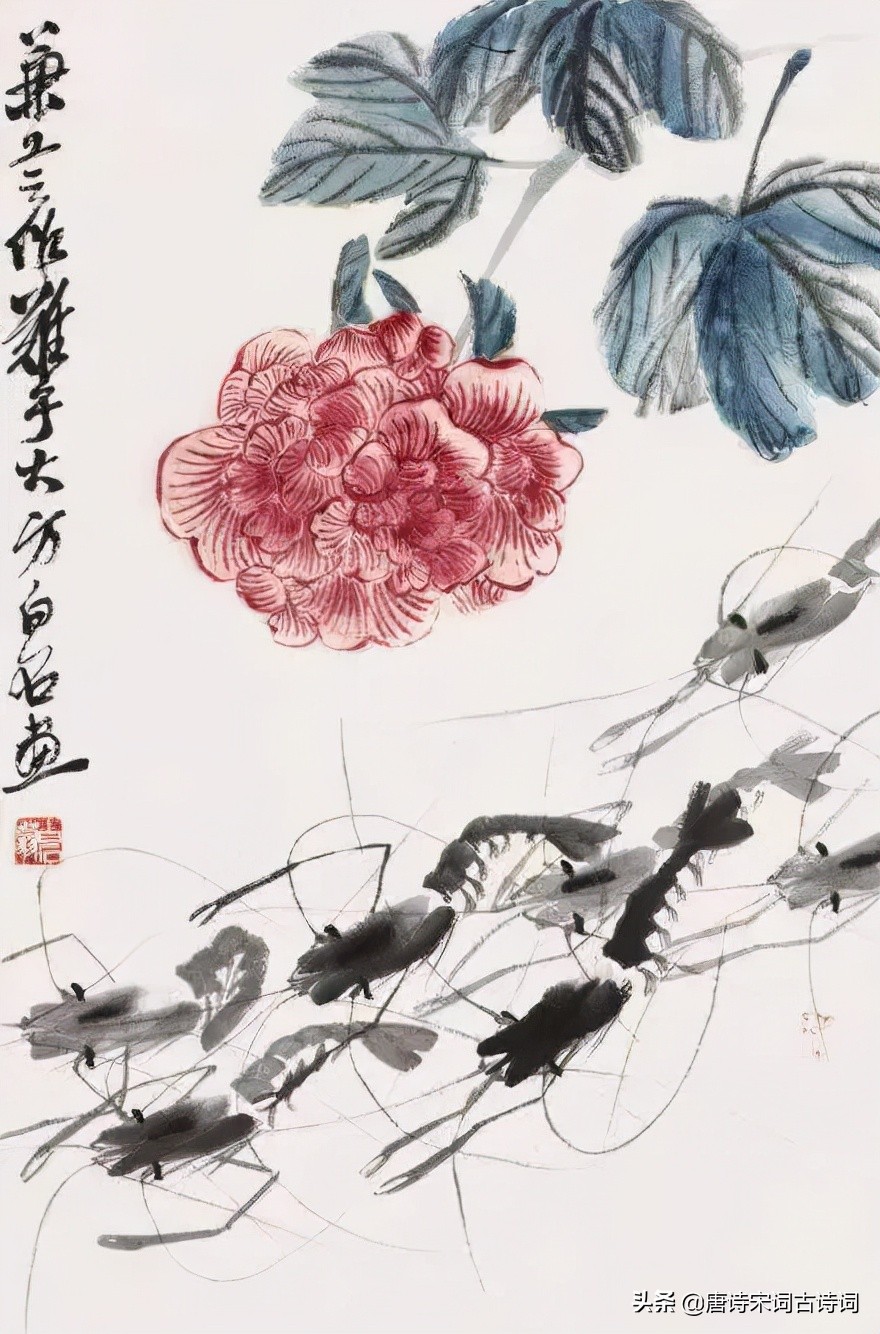 兼工之作難乎大方白石画
头条 @唐诗宋词古诗词